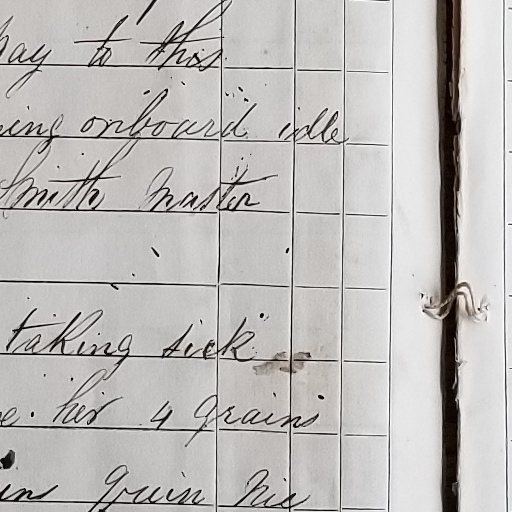 pay to this
ing onboard idle
Smith master
taking sick
his 4 grains